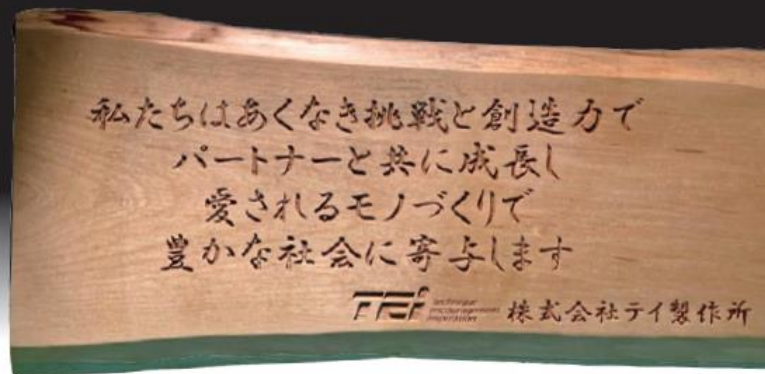 私たちはあくなき挑戦と創造力で
パートナーと共に成長し
愛されるモノづくりで
豊かな社会に寄与します
TEi technique encouragement inspiration 株式会社テイ製作所